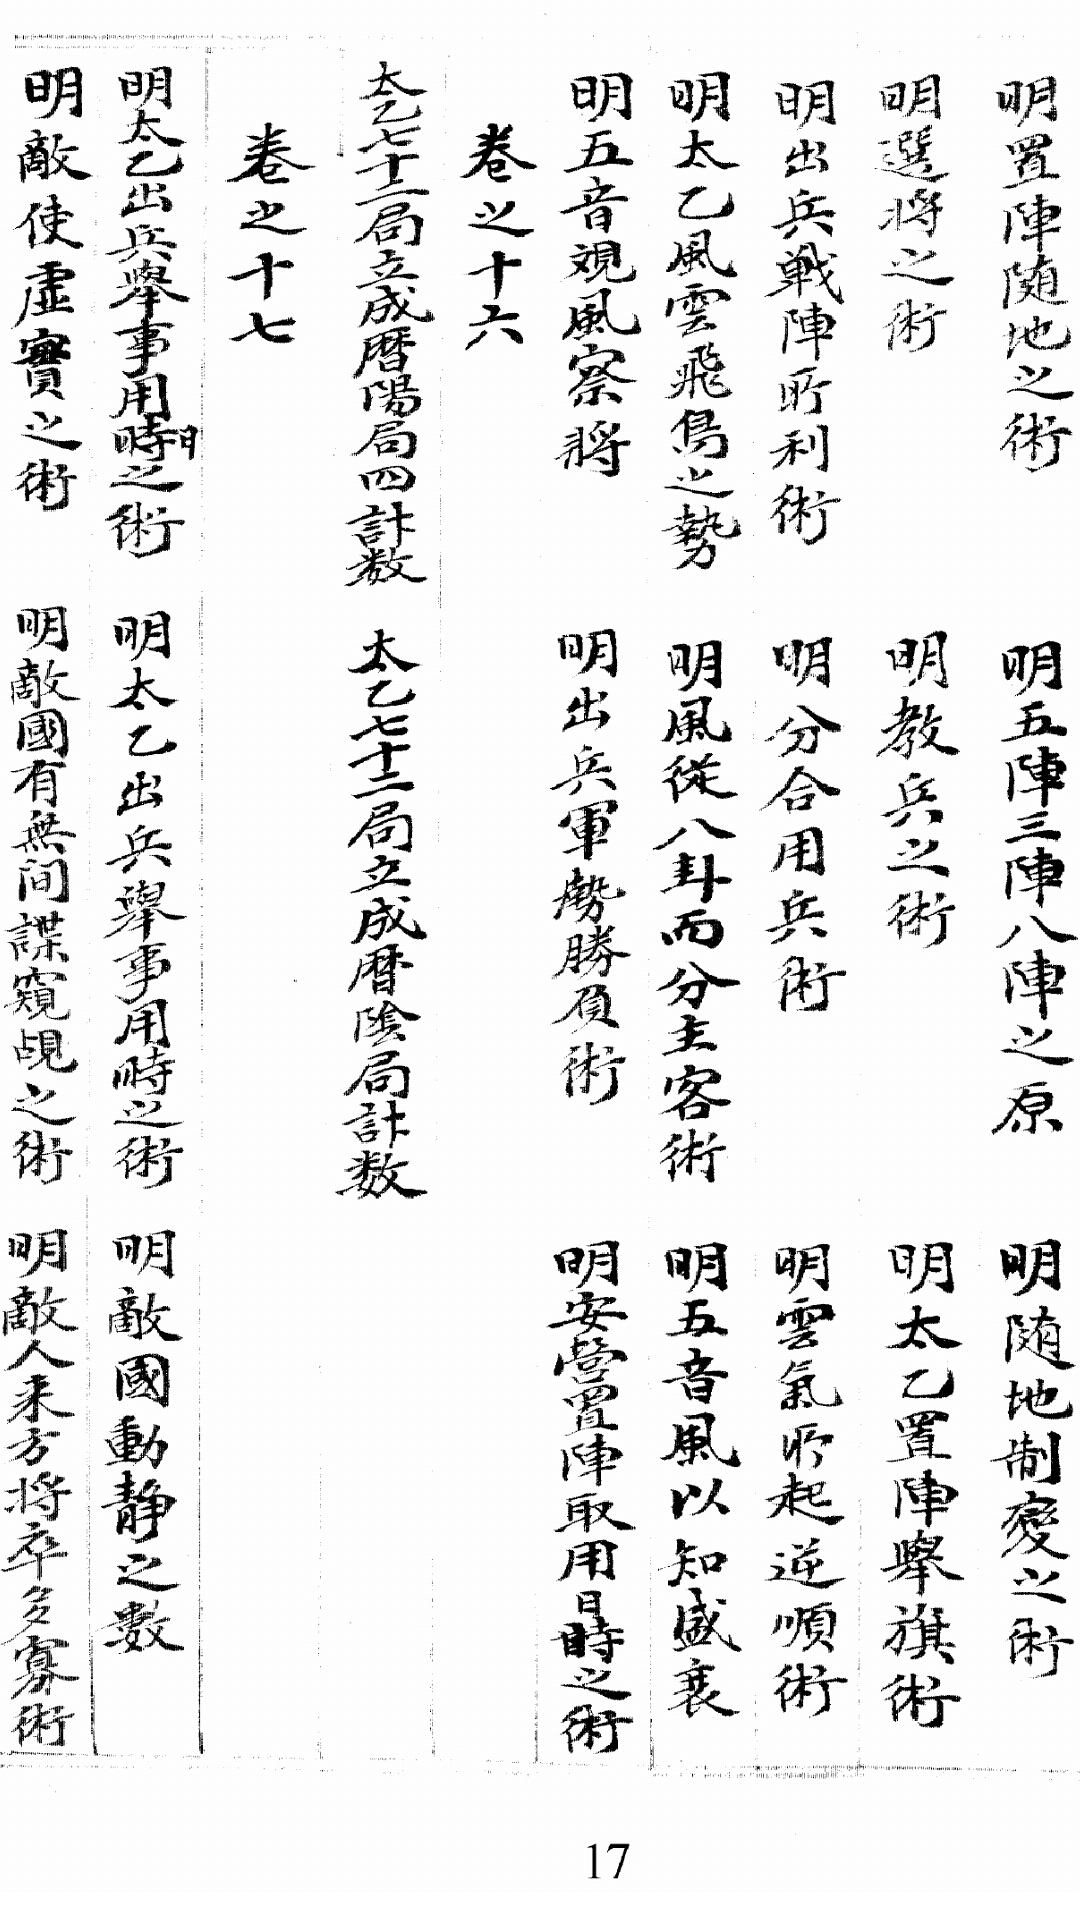 明置陣随地之術　明五陣三陣八陣之原　明随地制變之術
明選将之術　明教兵之術　明太乙置陣舉旗術
明出兵戦陣所利術　明分合用兵術　明雲氣所起逆順術
明太乙風雲飛鳥之勢　明風從八卦而分主客術　明五音風以知盛衰
明五音覌風察將　明出兵軍勢勝負術　明安營置陣取用日時之術
卷之十六
太乙七十二局立成暦陽局四計数　太乙七十二局立成暦陰局計数
卷之十七
明太乙出兵舉事用時日之術　明太乙出兵舉事用時之術　明敵國動静之數
明敵使虛實之術　明敵國有無间諜窺覘之術　明敵人来方将卒多寡術
17